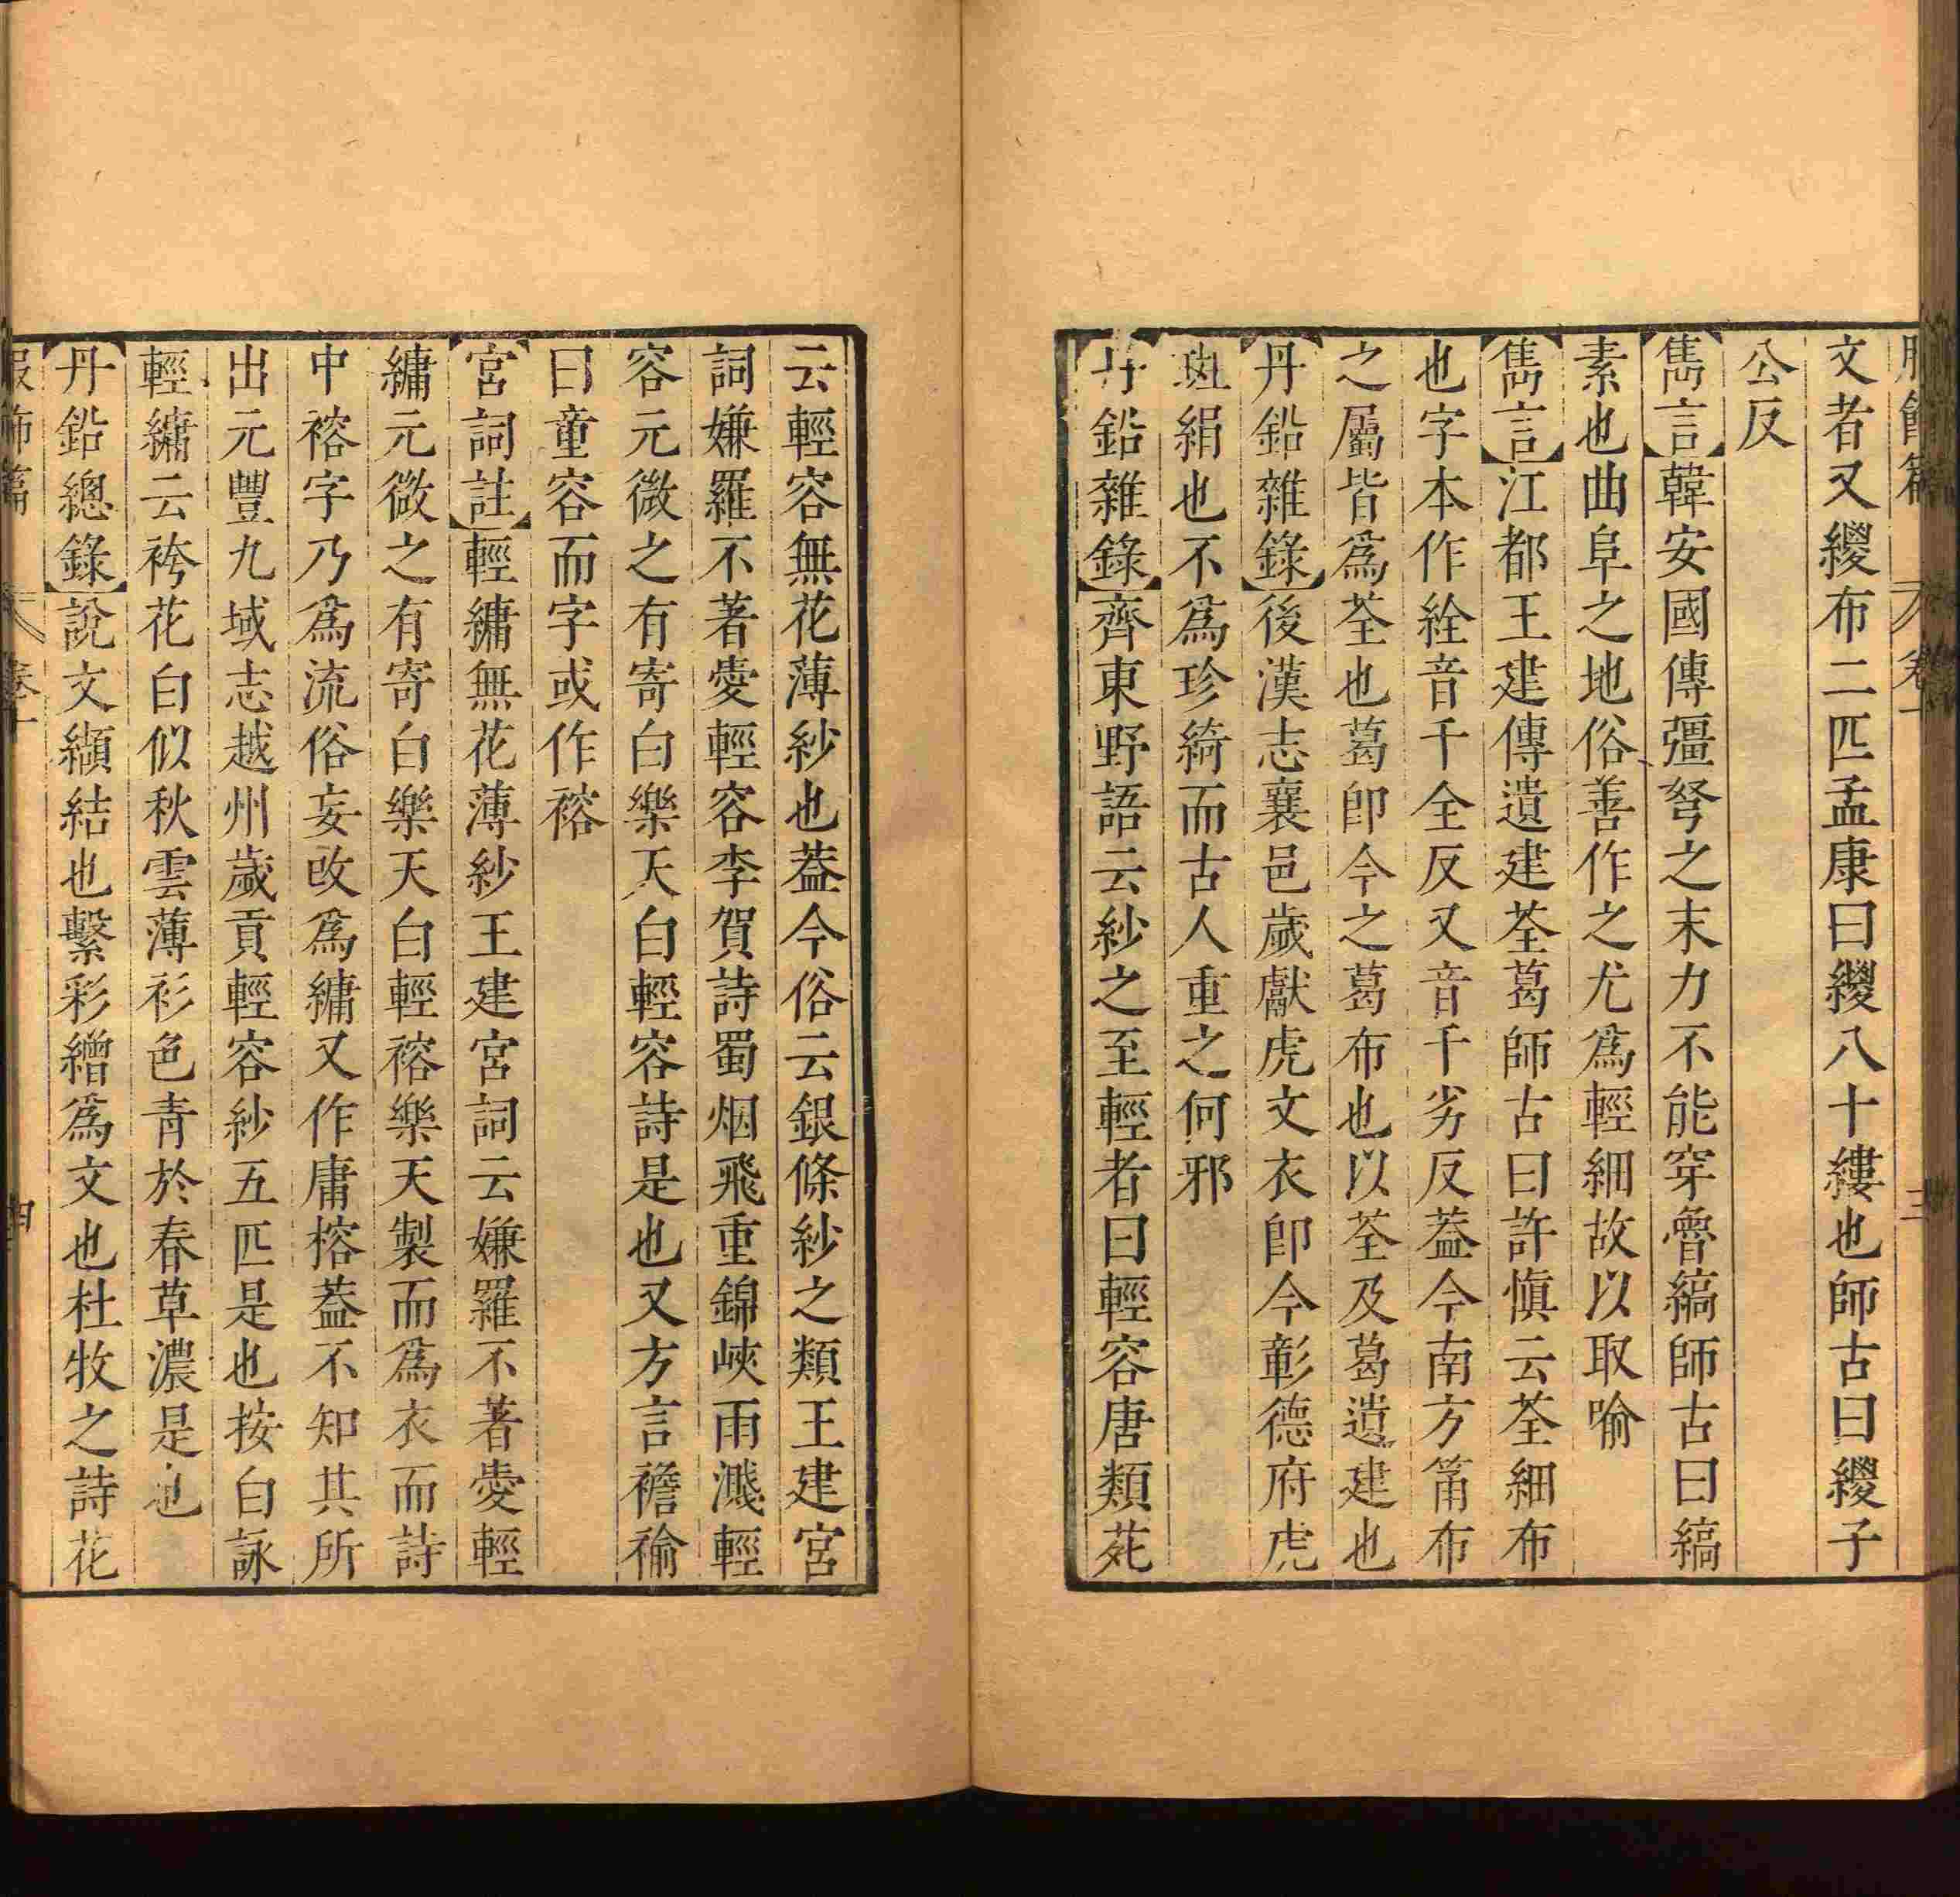 服飾篇 卷一 三
文者又緵布二匹孟康曰緵八十縷也師古曰緵子
公反
【雋言】韓安國傳彊弩之末力不能穿魯縞師古曰縞
素也曲阜之地俗善作之尤爲輕細故以取喻
【雋言】江都王建傳遺建荃葛師古曰許愼云荃細布
也字本作絟音千全反又音千劣反葢今南方筩布
之屬皆爲荃也葛卽今之葛布也以荃及葛遺建也
【丹鉛雜錄】後漢志襄邑歲獻虎文衣卽今彰德府虎
斑絹也不爲珍綺而古人重之何邪
【丹鉛雜錄】齊東野語云紗之至輕者曰輕容唐類苑
云輕容無花薄紗也葢今俗云銀條紗之類王建宮
詞嫌羅不著愛輕容李賀詩蜀烟飛重錦峽雨濺輕
容元微之有寄白樂天白輕容詩是也又方言襜褕
曰童容而字或作褣
【宮詞註】輕䌺無花薄紗王建宮詞云嫌羅不著愛輕
䌺元微之有寄白樂天白輕褣樂天製而爲衣而詩
中褣字乃爲流俗妄改爲䌺又作庸榕葢不知其所
出元豐九域志越州歲貢輕容紗五匹是也按白詠
輕䌺云袴花白似秋雲薄衫色青於春草濃是也
【丹鉛總錄】說文纈結也繫彩繒爲文也杜牧之詩花
服飾篇 卷一 四